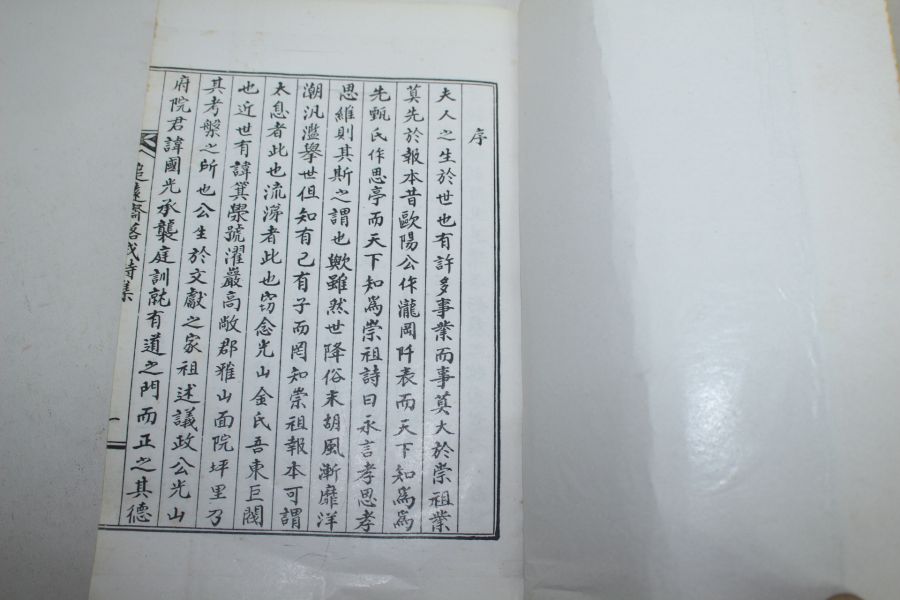 序
夫人之生於世也有許多事業而事莫大於崇祖業
莫先於報本昔歐陽公作瀧岡阡表而天下知爲爲
先甄氏作思亭而天下知爲崇祖詩曰永言孝思孝
思維則其斯之謂也歟雖然世降俗末胡風漸靡洋
潮汎濫擧世但知有己有子而罔知崇祖報本可謂
太息者此也流涕者此也窃念光山金氏吾東巨閥
也近世有諱箕學號濯嚴高敞郡雅山面院坪里乃
其考槃之所也公生於文獻之家祖述議政公光山
府院君諱國光承襲庭訓就有道之門而正之其德
追遠齋落成詩集
一